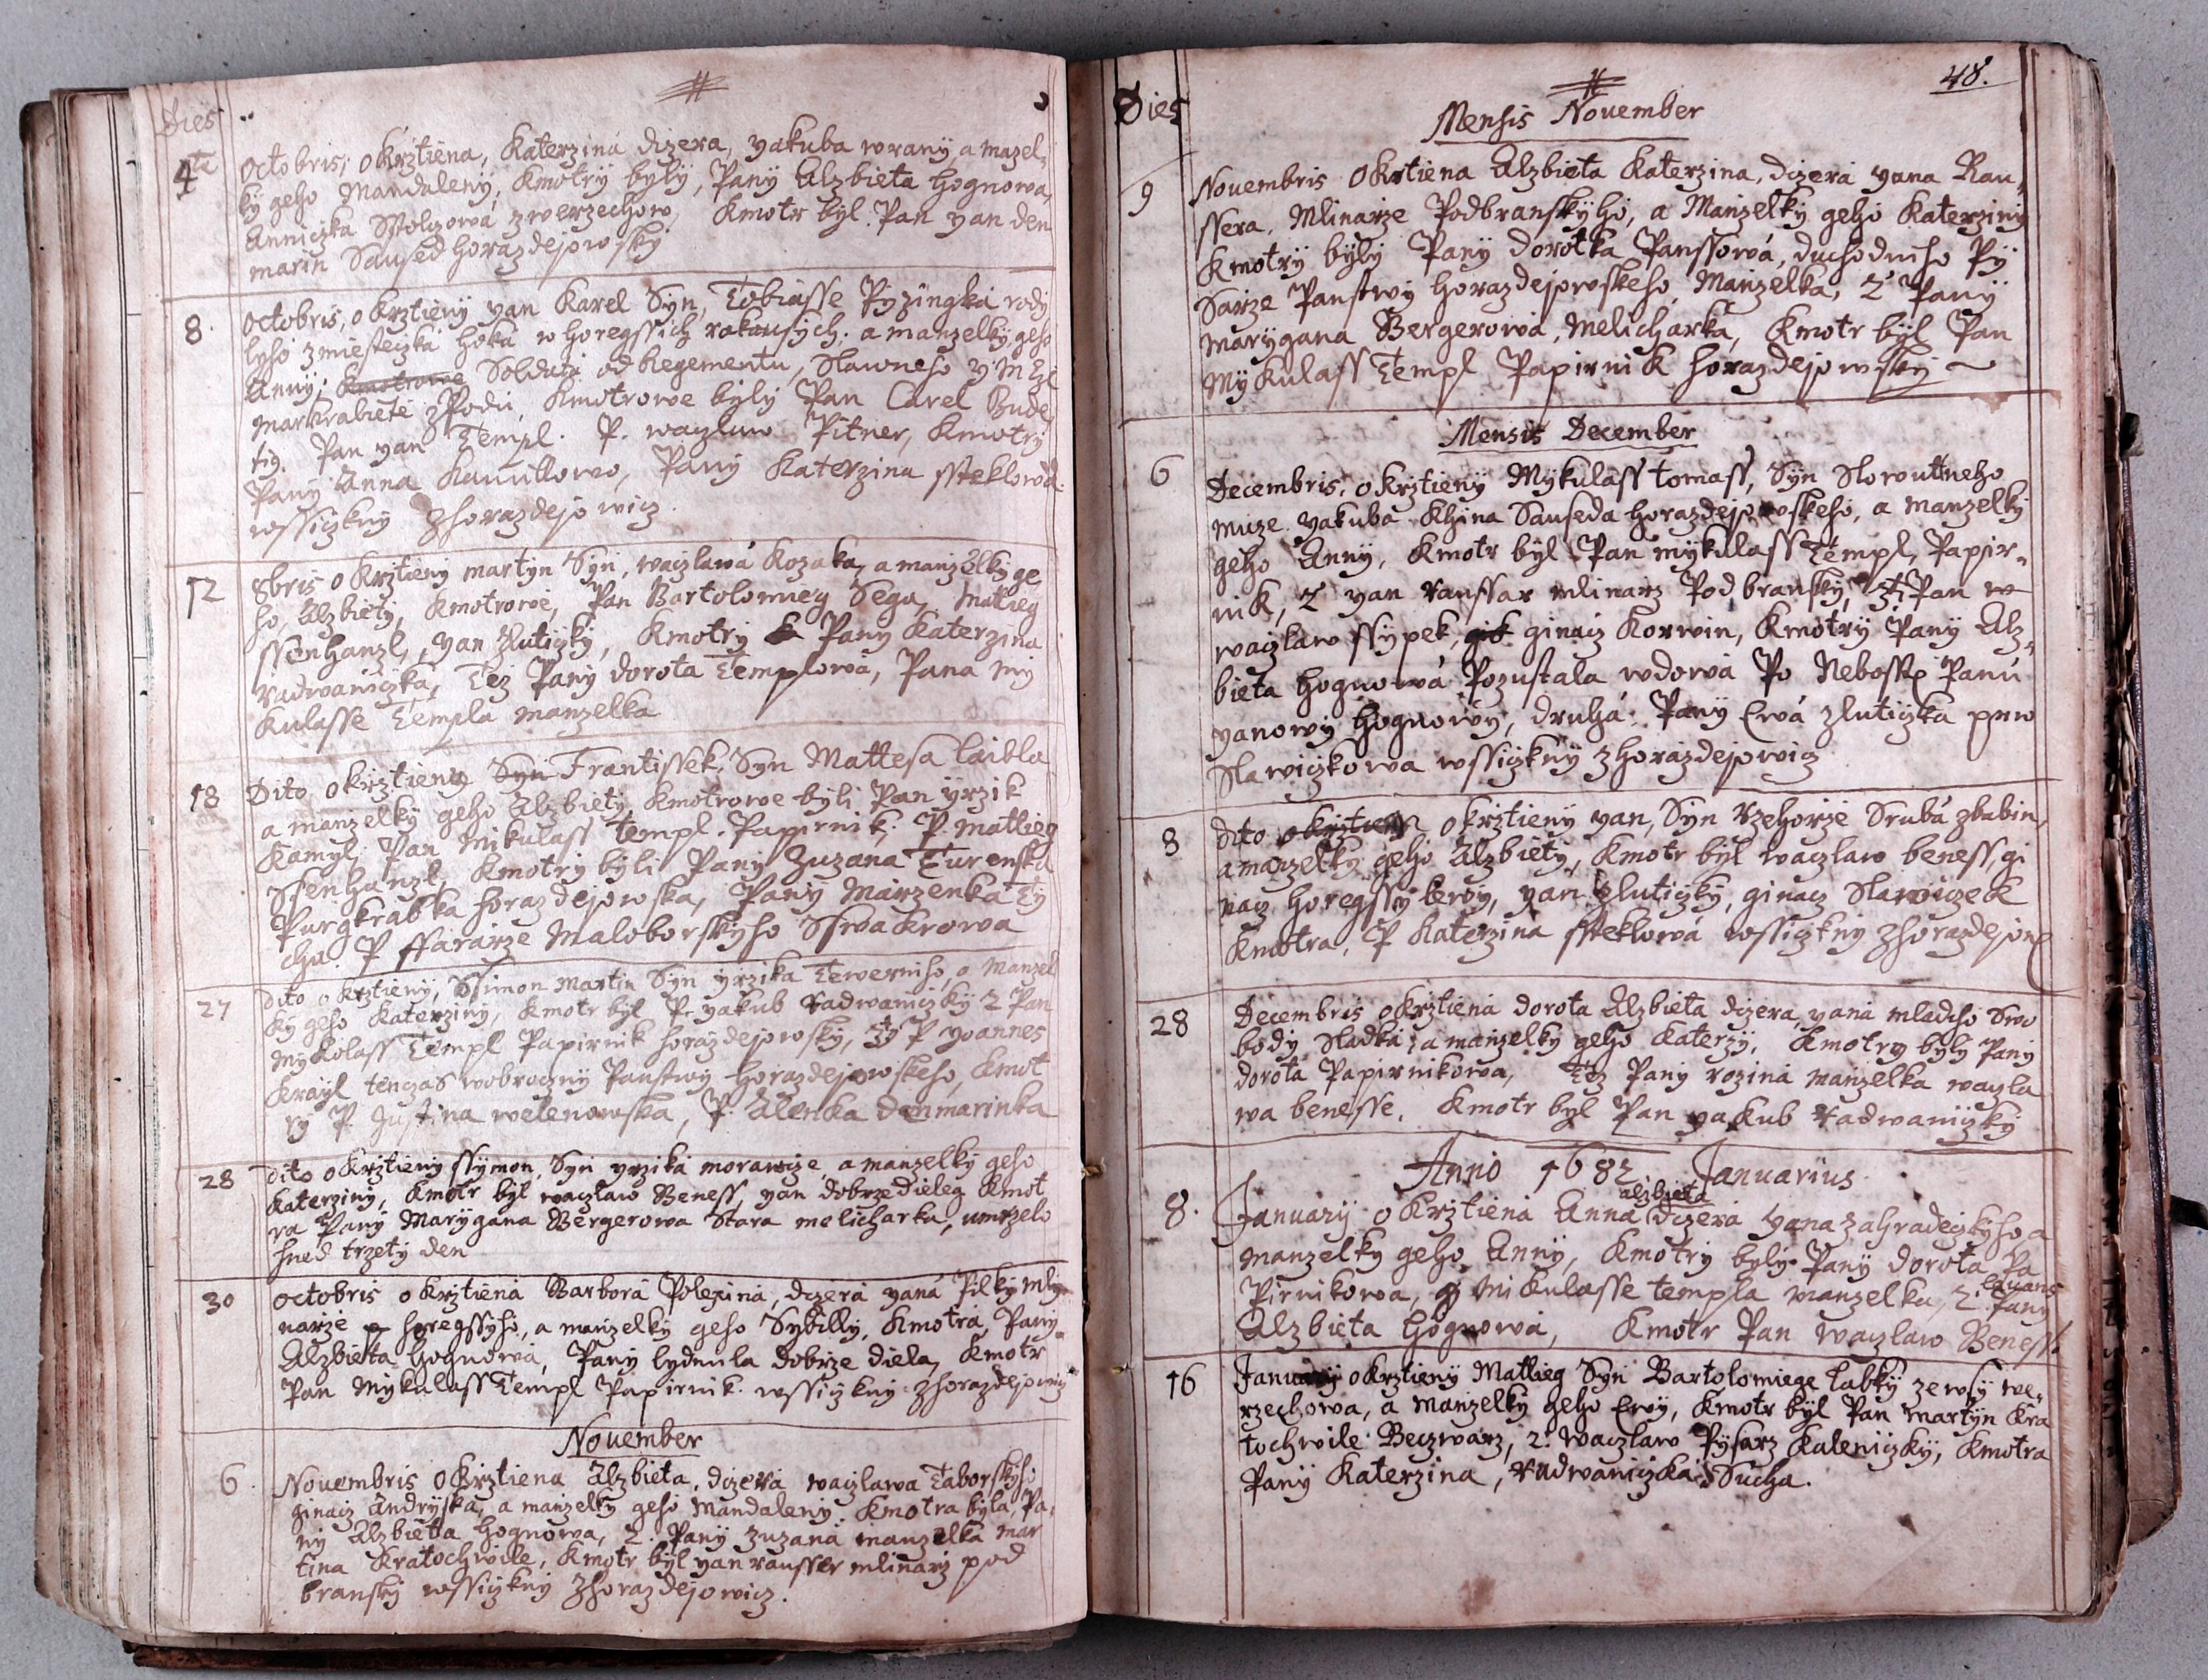 Dies
4ta
Octobris, okrztiena, Katerzina dczera, yakuba wrany, a mazel,
ky geho Mandaleny, Kmotry byly, Pany Alzbieta hognowa,
Anniczka Stolczowa zwerzechow, Kmotr byl Pan yan den
marin Saused horazdejowsky
8.
Octobris, okrztieny yan Karel Syn, Tobiasse Pyzingka rody
lyho zmiesteczka hoka w horegssich rakausych, a manzelky geho
Anny, Soldata od Regementu, Slawneho
Markrabiete zPodu, Kmotrowe byly Pan Carel Bude
tig. Pan yan Templ. P. waczlaw Pitner, Kmotry
Pany Anna Kamillowo, Pany Katerzina ssteklowa.
wssiczkny zhorazdejowicz.
12
8bris okrztieny martyn Syn, waczlawa Kozaka, a manzelky ge
ho, Alzbiety, Kmotrowe, Pan Bartolomieg Sega, Mattieg
ssenhanzl, yan zluticzky, Kmotry Pany Katerzina
radwaniczka, Tez Pany dorota Templowa, Pana my
kulasse Templa manzelka
18
Dito okrztieny Syn Frantissek, Syn Mattesa laibla
a manzelky geho Alzbiety Kmotrowe byli Pan yrzik
Kamyl, Pan Mikulass Templ. Papirnik, P. Mattieg
Ssenhanzl, Kmotry byli Pany Zuzana Turenska
Purgkrabka horazdejowska, Pany Marzenka Ty
cha. P ffararze Maloborskyho Sswakrowa
27
Dito okrztieny, Ssimon Martin Syn yrzika Tewerniho, a Manzel
ky geho Katerziny, Kmotr byl P. yakub radwaniczky 2 Pan
Mykolass Templ Papirnik horazdejowsky, P yoannes
Krayl tenczas wobroczny Panstwy horazdejowskeho, Kmot
ry P. Justina welenowska, P. Alenka denmarinka
28
dito okrztieny ssymon, Syn yrzika morawcze, a manzelky geho
Katerziny, Kmotr byl waczlaw Beness, yan dobrzedieleg Kmot
ra Pany Marygana Bergerowa Stara melicharka, umrzelo
hned trzety den
30
Octobris okrztiena Barbora Polexina, dczera yana Pilky mly
narze horegssyho, a manzelky geho Sybilly, Kmotra, Pany
Alzbieta hognowa, Pany lydmila dobrze diela, Kmotr
Pan Mykulass Templ Papirnik. wssiczkny zhorazdejowicz
November
6.
Novembris okrztiena Alzbieta, dczera waczlawa Taborskyho
ginacz Andryska, a manzelky geho Mandaleny. Kmotra byla, Pa,
ny Alzbieta hognowa, 2. Pany zuzana manzelka mar
tina Kratochwile, Kmotr byl yan rausser mlinarz pod
bransky wssiczkny zhorazdejowicz.
48.
Dies
Mensis November
9
Novembris Okrtiena Alzbieta Katerzina, dczera yana Rau,
ssera, Mlinarze Podbranskyho, a Manzelky geho Katerziny
Kmotry byly Pany dorotka Panssowa, duchodniho Py
Sarze Panstwy horazdejowskeho Manzelka, 2 Pany
Marygana Bergerowa, Melicharka, Kmotr byl Pan
Mykulass Templ Papirnik horazdejowsky
Mensis December
6
Decembris, okrztieny Mykulass tomass, Syn Slowutneho
muze yakuba Khina Sauseda horazdejowskeho, a manzelky
geho Anny, Kmotr byl Pan mykulass Templ, Papir,
nik, 2 yan raussar mlinarz Podbransky, Pan w
waczlaw ssypek, ginacz Korwin, Kmotry Pany Alz,
bieta hognowa Pozustala wdowa Po Nebosstiku Panu
yanowy hognowy, druha Pany Ewa zluticzka
Slawiczkowa wssiczkny zhorazdejowicz
8
dito okrztieny yan, Syn rzehorze Sruba zbabin,
a manzelky geho Alzbiety, Kmotr byl waczlaw beness, gi
nacz horegssy, yan zluticzky, ginacz Slawiczek
Kmotra, P Katerzina ssteklowa wssiczkny zhorazdejow
28
Decembris okrztiena dorota Alzbieta dczera yana mladcho Swo
body Sladka, a manzelky geho Katerzy, Kmotry byly Pany
dorota Papirnikowa, Tez Pany rozina manzelka waczla
wa benesse, Kmotr byl Pan yakub radwaniczky
Anno 1682 Januarius
8.
alzbieta
January okrztiena Anna dczera yana zahradeczkyho a
manzelky geho Anny, Kmotry byly Pany dorota Pa
Pirnikowa, Mikulasse templa manzelka, 2. Pany
Alzbieta hognowa, Kmotr Pan waczlaw Beness
16
January okrztieny Mattieg Syn Bartolomiege labky zewsy we,
rzechowa, a manzelky geho Ewy, Kmotr byl Pan martyn Kra
tochwile Beczwarz, 2. waczlaw Pysarz kaleniczky, Kmotra
Pany Katerzina, radwaniczka Sucha.